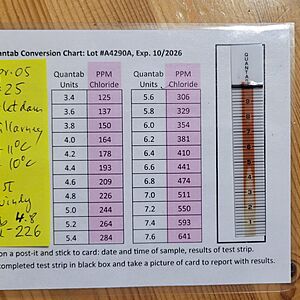 antab Conversion Chart: Lot #A4290A, Exp. 10/2026
Quantab Units PPM Chloride Quantab Units PPM Chloride
3.4 125 5.6 306
3.6 137 5.8 329
3.8 150 6.0 354
4.0 164 6.2 381
4.2 178 6.4 410
4.4 193 6.6 441
4.6 209 6.8 474
4.8 226 7.0 511
5.0 244 7.2 550
5.2 264 7.4 593
5.4 284 7.6 641
05
25
11°C
10°C
4.8
226
QUANTAB
9
8
7
6
5
4
3
2
1
on a post-it and stick to card: date and time of sample, results of test strip.
completed test strip in black box and take a picture of card to report with results.